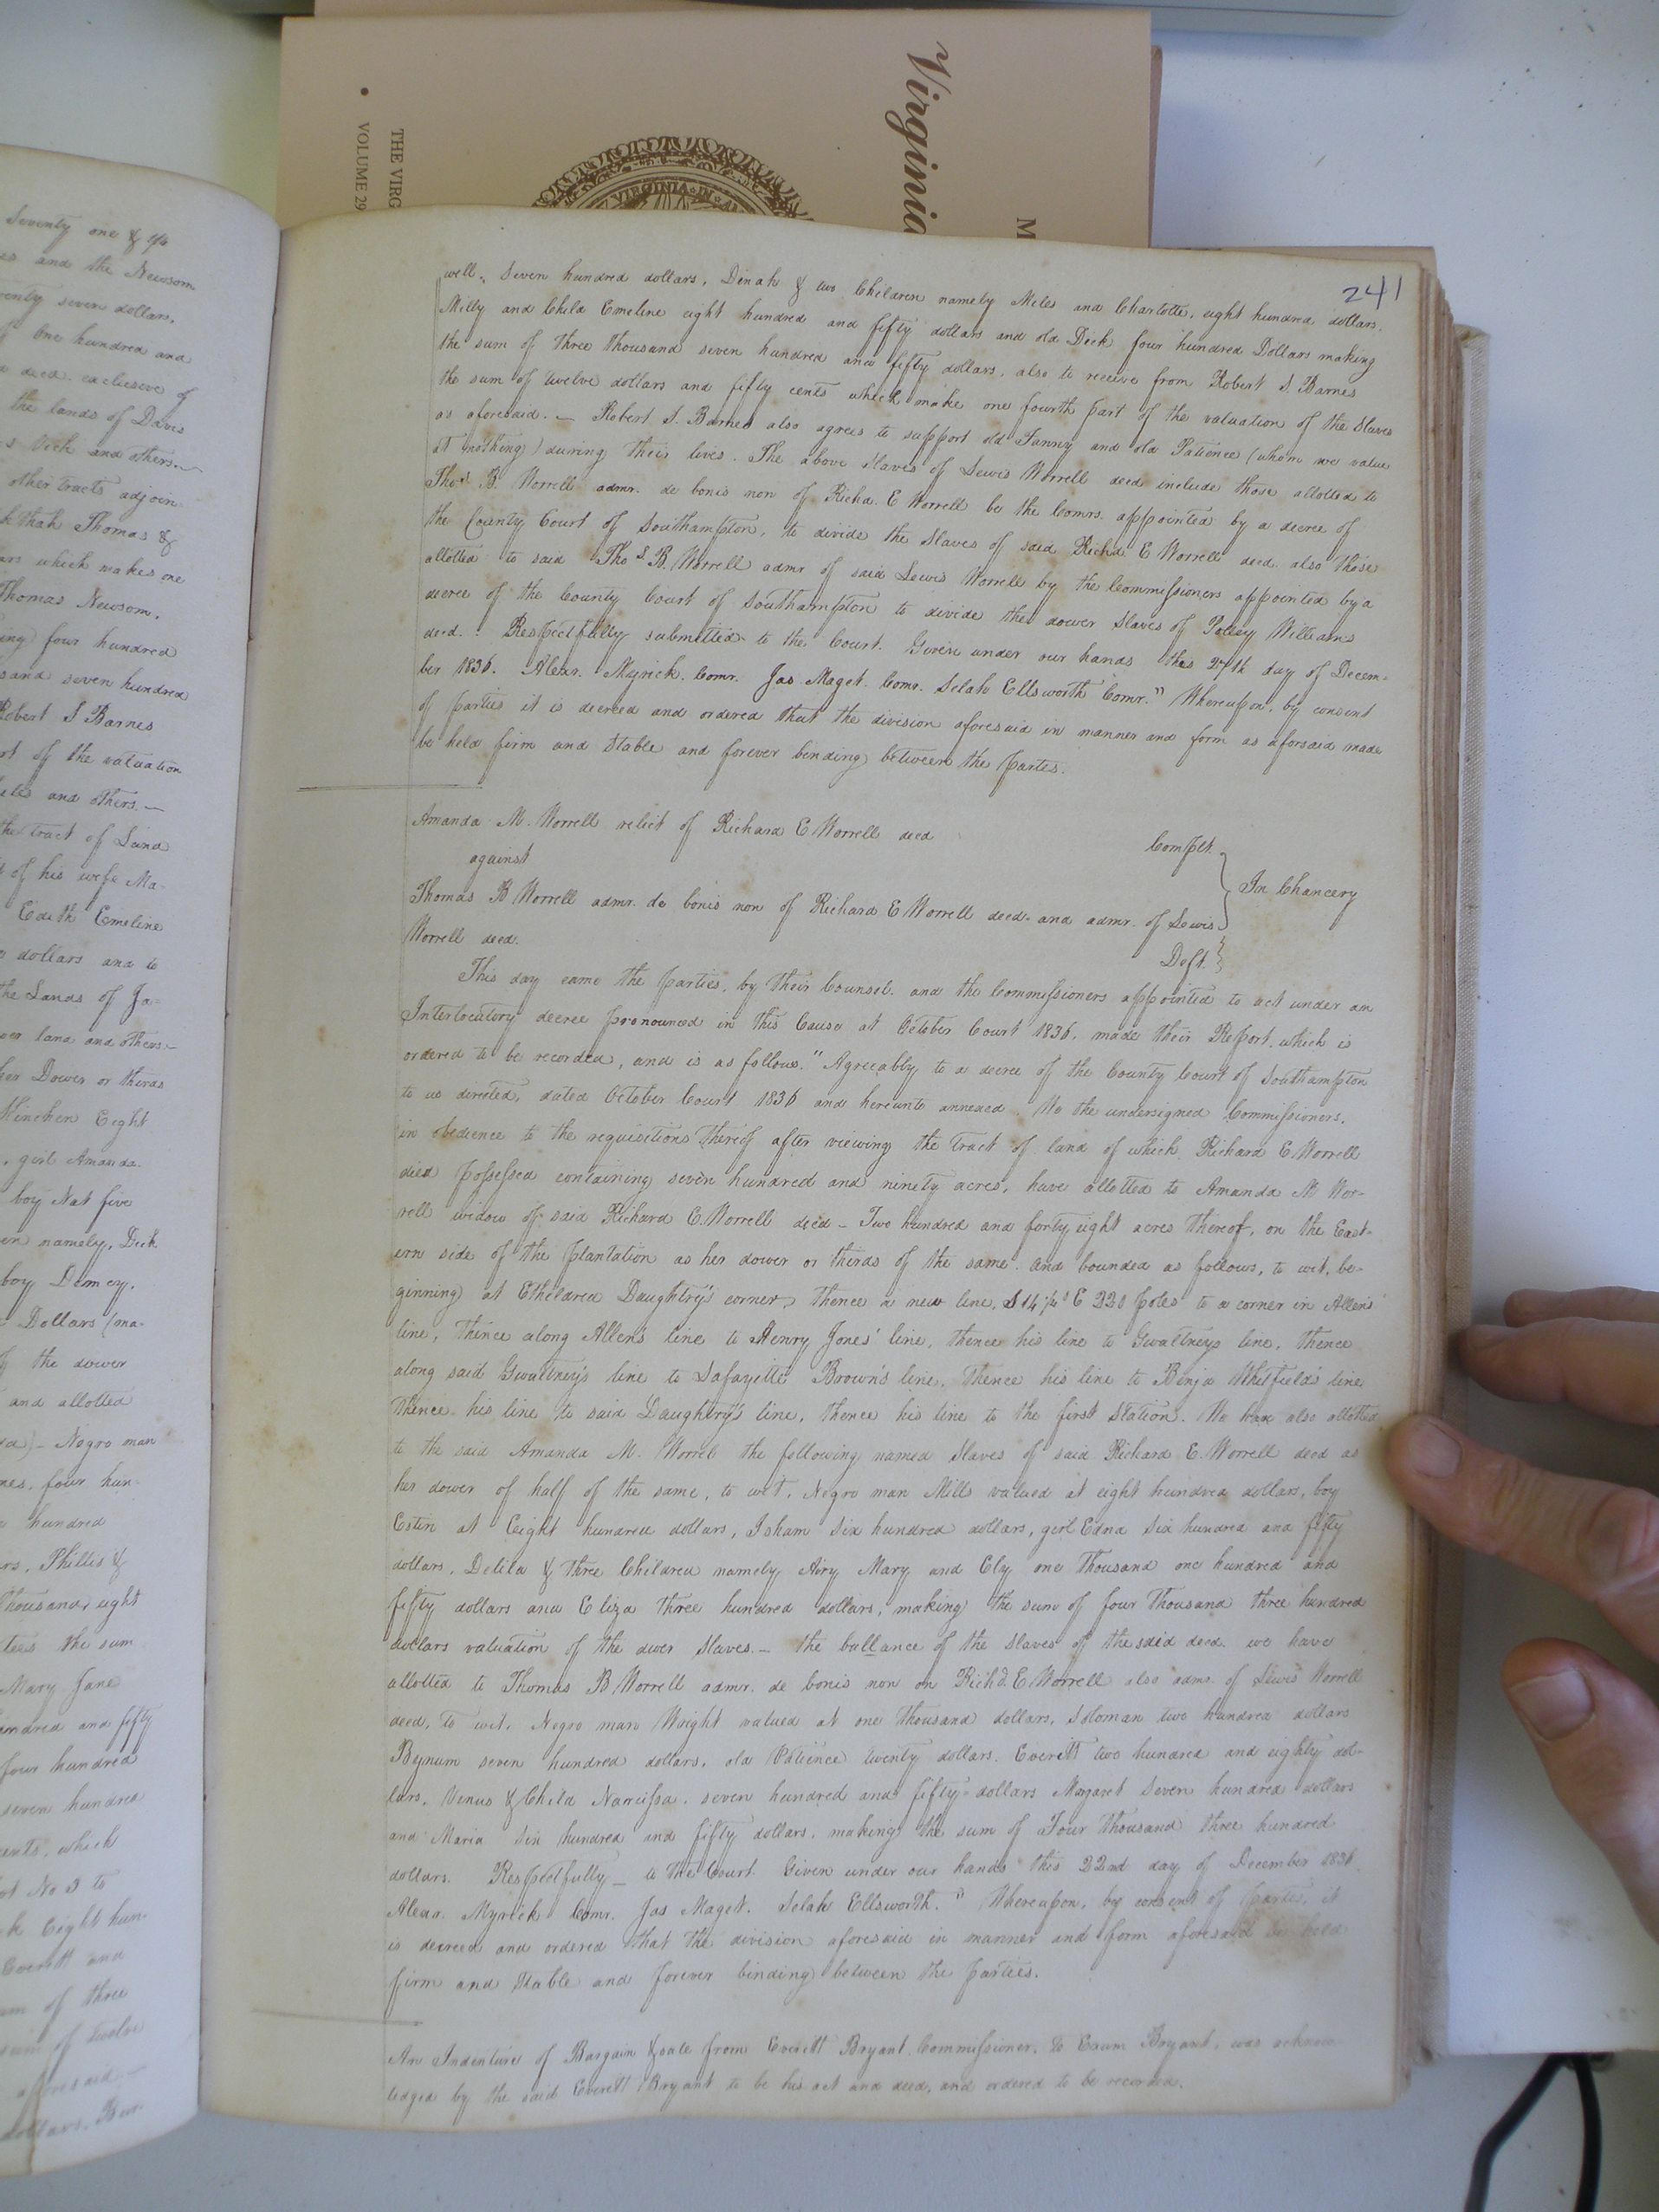 Virginia
M
THE VIRG
VOLUME 29
VIRGINIA IN
241
well, Seven hundred dollars, Dinah & two Children namely Miles and Charlotte, eight hundred dollars.
Milly and Child Emeline eight hundred and fifty dollars and old Dick four hundred Dollars making
the sum of three thousand seven hundred and fifty dollars, also to receive from Robert S. Barnes
the sum of twelve dollars and fifty cents which make one fourth part of the valuation of the Slaves
as aforesaid. — Robert S. Barnes also agrees to support old Fanny and old Patience (whom we value
at nothing) during their lives. The above Slaves of Lewis Worrell decd include those allotted to
Thos. B. Worrell admr. de bonis non of Richd. E Worrell be the Comrs. appointed by a decree of
the County Court of Southampton, to divide the Slaves of said Richd E Worrell decd. also those
allotted to said Thos B. Worrell admr of said Lewis Worrell by the Commissioners appointed by a
decree of the County Court of Southampton to divide the dower Slaves of Polley Williams
decd. Respectfully submitted to the Court. Given under our hands this 27th day of Decem-
ber 1836. Alexr. Myrick. Comr. Jas Maget. Comr. Selah Ellsworth Comr." Whereupon, by consent
of parties it is decreed and ordered that the division aforesaid in manner and form as aforsaid made
be held firm and Stable and forever binding between the parties.
Amanda M. Worrell relict of Richard E Worrell decd
Complt.
against
In Chancery
Thomas B Worrell admr. de bonis non of Richard E Worrell deed. and admr. of Lewis
Worrell deed.
Deft.
This day came the parties, by their Counsel. and the Commissioners appointed to act under an
Interlocutory decree pronounced in this Cause at October Court 1836. made their Report, which is
ordered to be recorded, and is as follows. "Agreeably to a decree of the County Court of Southampton
to us directed, dated October Court 1836 and hereunto annexed. We the undersigned Commissioners,
in obedience to the requisitions thereof after viewing the tract of land of which Richard E Worrell
died possessed containing seven hundred and ninety acres, have allotted to Amanda M Wor-
rell widow of said Richard E. Worrell decd – Two hundred and forty eight acres thereof, on the East-
ern side of the plantation as her dower or thirds of the same. and bounded as follows, to wit, be-
ginning at Etheldred Daughtry's corner, thence a new line, S 14 1/4° E 220 poles to a corner in Allen's
line, thence along Allen's line to Henry Jones' line, thence his line to Gwaltneys line, thence
along said Gwaltney's line to Lafayette Brown's line, thence his line to Binja Whitfield's line
thence his line to said Daughtry's line, thence his line to the first Station. We have also allotted
to the said Amanda M. Worrell the following named Slaves of said Richard E. Worrell decd as
her dower of half of the same, to wit, Negro man Mills valued at eight hundred dollars, boy
Estin at Eight hundred dollars, Isham Six hundred dollars, girl Edna Six hundred and fifty
dollars, Delila & three Children namely Airy Mary and Ely one thousand one hundred and
fifty dollars and Eliza three hundred dollars, making the sum of four thousand three hundred
dollars valuation of the dwer Slaves. – the ballance of the Slaves of the said deed. we have
allotted to Thomas B Worrell admr. de bonis non on Richd. E Worrell also admr. of Lewis Worrell
deed, to wit, Negro man Wright valued at one thousand dollars, Soloman two hundred dollars
Bynum seven hundred dollars, old Patience twenty dollars. Everitt two hundred and eighty dol-
lars, Venus & Child Narcissa, seven hundred and fifty dollars Margaret Seven hundred dollars
and Maria Six hundred and fifty dollars. making the sum of Four thousand three hundred
dollars. Respectfully — to the Court. Given under our hands this 22nd day of December 1836.
Alexr. Myrick Comr. Jas Maget. Selah Ellsworth." Whereupon, by consent of parties, it
is decreed and ordered that the division aforesaid in manner and form aforesaid be held
firm and Stable and forever binding between the parties.
An Indenture of Bargain & sale from Everitt Bryant Commissioner, to Exum Bryant, was acknow-
ledged by the said Everett Bryant to be his act and deed, and ordered to be recorded.
Seventy one &
and the Newsom
seven dollars.
One hundred and
decd. exclusive of
the lands of Davis
Dick and others.—
other tracts adjoin-
that Thomas &
which makes one
Thomas Newsom.
four hundred
sand seven hundred
Robert S Barnes
of the valuation
and others. —
the tract of Land
of his wife Ma-
Edith Emeline
dollars and to
the Lands of Ja-
land and others.—
her Dower or thirds
Hinchen Eight
girl Amanda.
boy Nat five
namely, Dick
boy Demcy.
Dollars (ma-
of the dower
and allotted
Negro man
four hun-
hundred
Phillis &
thousand eight
the sum
Mary Jane
hundred and fifty
four hundred
seven hundred
cents, which
No 3 to
Eight hun-
Everitt and
of three
sum of twelve
aforesaid. —
dollars.